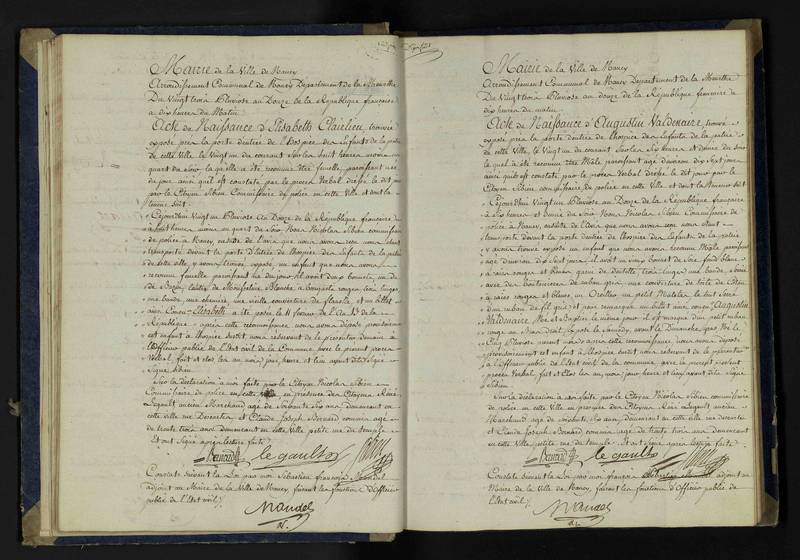 Mairie de la Ville de Nancy
Arrondissement Communal de Nancy Département de la Meurthe
Du Vingt trois Pluviose au Douze de la République française
à dix heures du Matin
Acte de Naissance d'Elisabeth Clairlieu, trouvée
exposée près la porte d'entrée de l'hospice des enfants de la patrie
de cette Ville, le Vingt un du courant sur les huit heures moins un
quart du soir laquelle a été reconnue être femelle, paroissant née
du jour ainsi quil est constaté par le procès Verbal dressé le dit jour
par le Citoyen Sibien Commissaire de police en cette Ville et dont la
teneur suit
Cejourdhui Vingt un Pluviose au Douze de la République française
à huit heures moins un quart du Soir Nous Nicolas Sibien commissaire
de police à Nancy, ensuite de l'avis que nous avons reçu nous étant
transporté devant la porte d'entrée de l'hospice des Enfants de la patrie
de cette Ville, y avons trouvé exposé, un enfant que nous avons
reconnu femelle paroissant née du jour, il avoit deux bonnets, un
Blanche à bouquets rouges, trois linges
une bande, une chemise, une vieille couverture de flanelle, et un billet
Elisabeth a été posée le
République. après cette reconnoissance nous avons déposé provisoirement
cet enfant à l'hospice susdit nous réservant de le présenter demain à
l'Officier public de l'état civil de la Commune avec le présent procès
Verbal, fait et clos les an, mois, jour, heure, et lieu avant dits Signé
Signé Sibien
Sur la déclaration à nous faite par le Citoyen Nicolas Sibien
Commissaire de police en cette Ville, en présence des Citoyens René
Legault ancien Marchand agé de soixante six ans demeurant en
cette ville rue et Claude Joseph Bernard commis agé
de trente trois ans demeurant en cette Ville petite rue du temple
Et ont Signé après lecture faite
Bernard le gault Sibien
Constaté suivant la Loi par moi Sébastien françois Mandel
adjoint au Maire de la Ville de Nancy, faisant les fonctions d'Officier
public de l'état civil
Mandel
Mairie de la Ville de Nancy
Arrondissement Communal de Nancy Département de la Meurthe
Du Vingt trois Pluviose au Douze de la République française à
dix heures du matin
Acte de Naissance d'Augustin Valdenaire, trouvé
exposé près la porte d'entrée de l'hospice des Enfants de la patrie
de cette Ville, le Vingt un du courant sur les Six heures et demie du soir
lequel a été reconnu être Mâle paroissant agé d'environ dix Sept jours
ainsi quil est constaté par le procès Verbal dressé le dit jour par le
Citoyen Sibien commissaire de police en cette Ville et dont la Teneur Suit
Cejourdhui Vingt un Pluviose au Douze de la République française
à Six heures et demie du Soir Nous Nicolas Sibien Commissaire de
police à Nancy, ensuite de l'avis que nous avons reçu nous étant
transporté devant la porte d'entrée de l'hospice des Enfants de la patrie
y avons trouvé exposé un enfant que nous avons reconnu Mâle paroissant
agé d'environ dix Sept jours, il avoit un vieux bonnet de Soie fond blanc
à raies rouges et trois linges, une bande
avec des de ruban gris, une couverture de toile de Coton
à raies rouges et blanc, un Oreiller un petit Matelas, le tout serré
d'un ruban de fil gris et pour remarque un billet ainsi conçu Augustin
Valdenaire Né et Baptisé le même jour il est marqué d'un petit ruban
rouge au bras droit, exposé le Samedy, avant le Dimanche gras Né le
Cinq Pluviose présent mois après cette reconnoissance nous avons déposé
provisoirement cet enfant à l'hospice susdit nous réservant de le présenter
à l'Officier public de l'état civil de la commune avec le présent
procès Verbal, fait et Clos les an, mois, jour heure et lieu avant dits signé
Sibien
Sur la déclaration à nous faite par le Citoyen Nicolas Sibien, commissaire
de police en cette Ville en présence des Citoyens René Legault ancien
Marchand agé de soixante Six ans, demeurant en cette ville rue
et Claude Joseph Bernard commis agé de trente trois ans demeurant
en cette Ville petite rue du temple. Et ont Signé après lecture faite
Bernard le gault Sibien
Constaté suivant la Loi par moi françois Sébastien Mandel adjoint au
Maire de la Ville de Nancy, faisant les fonctions d'Officier public de
l'état civil
Mandel